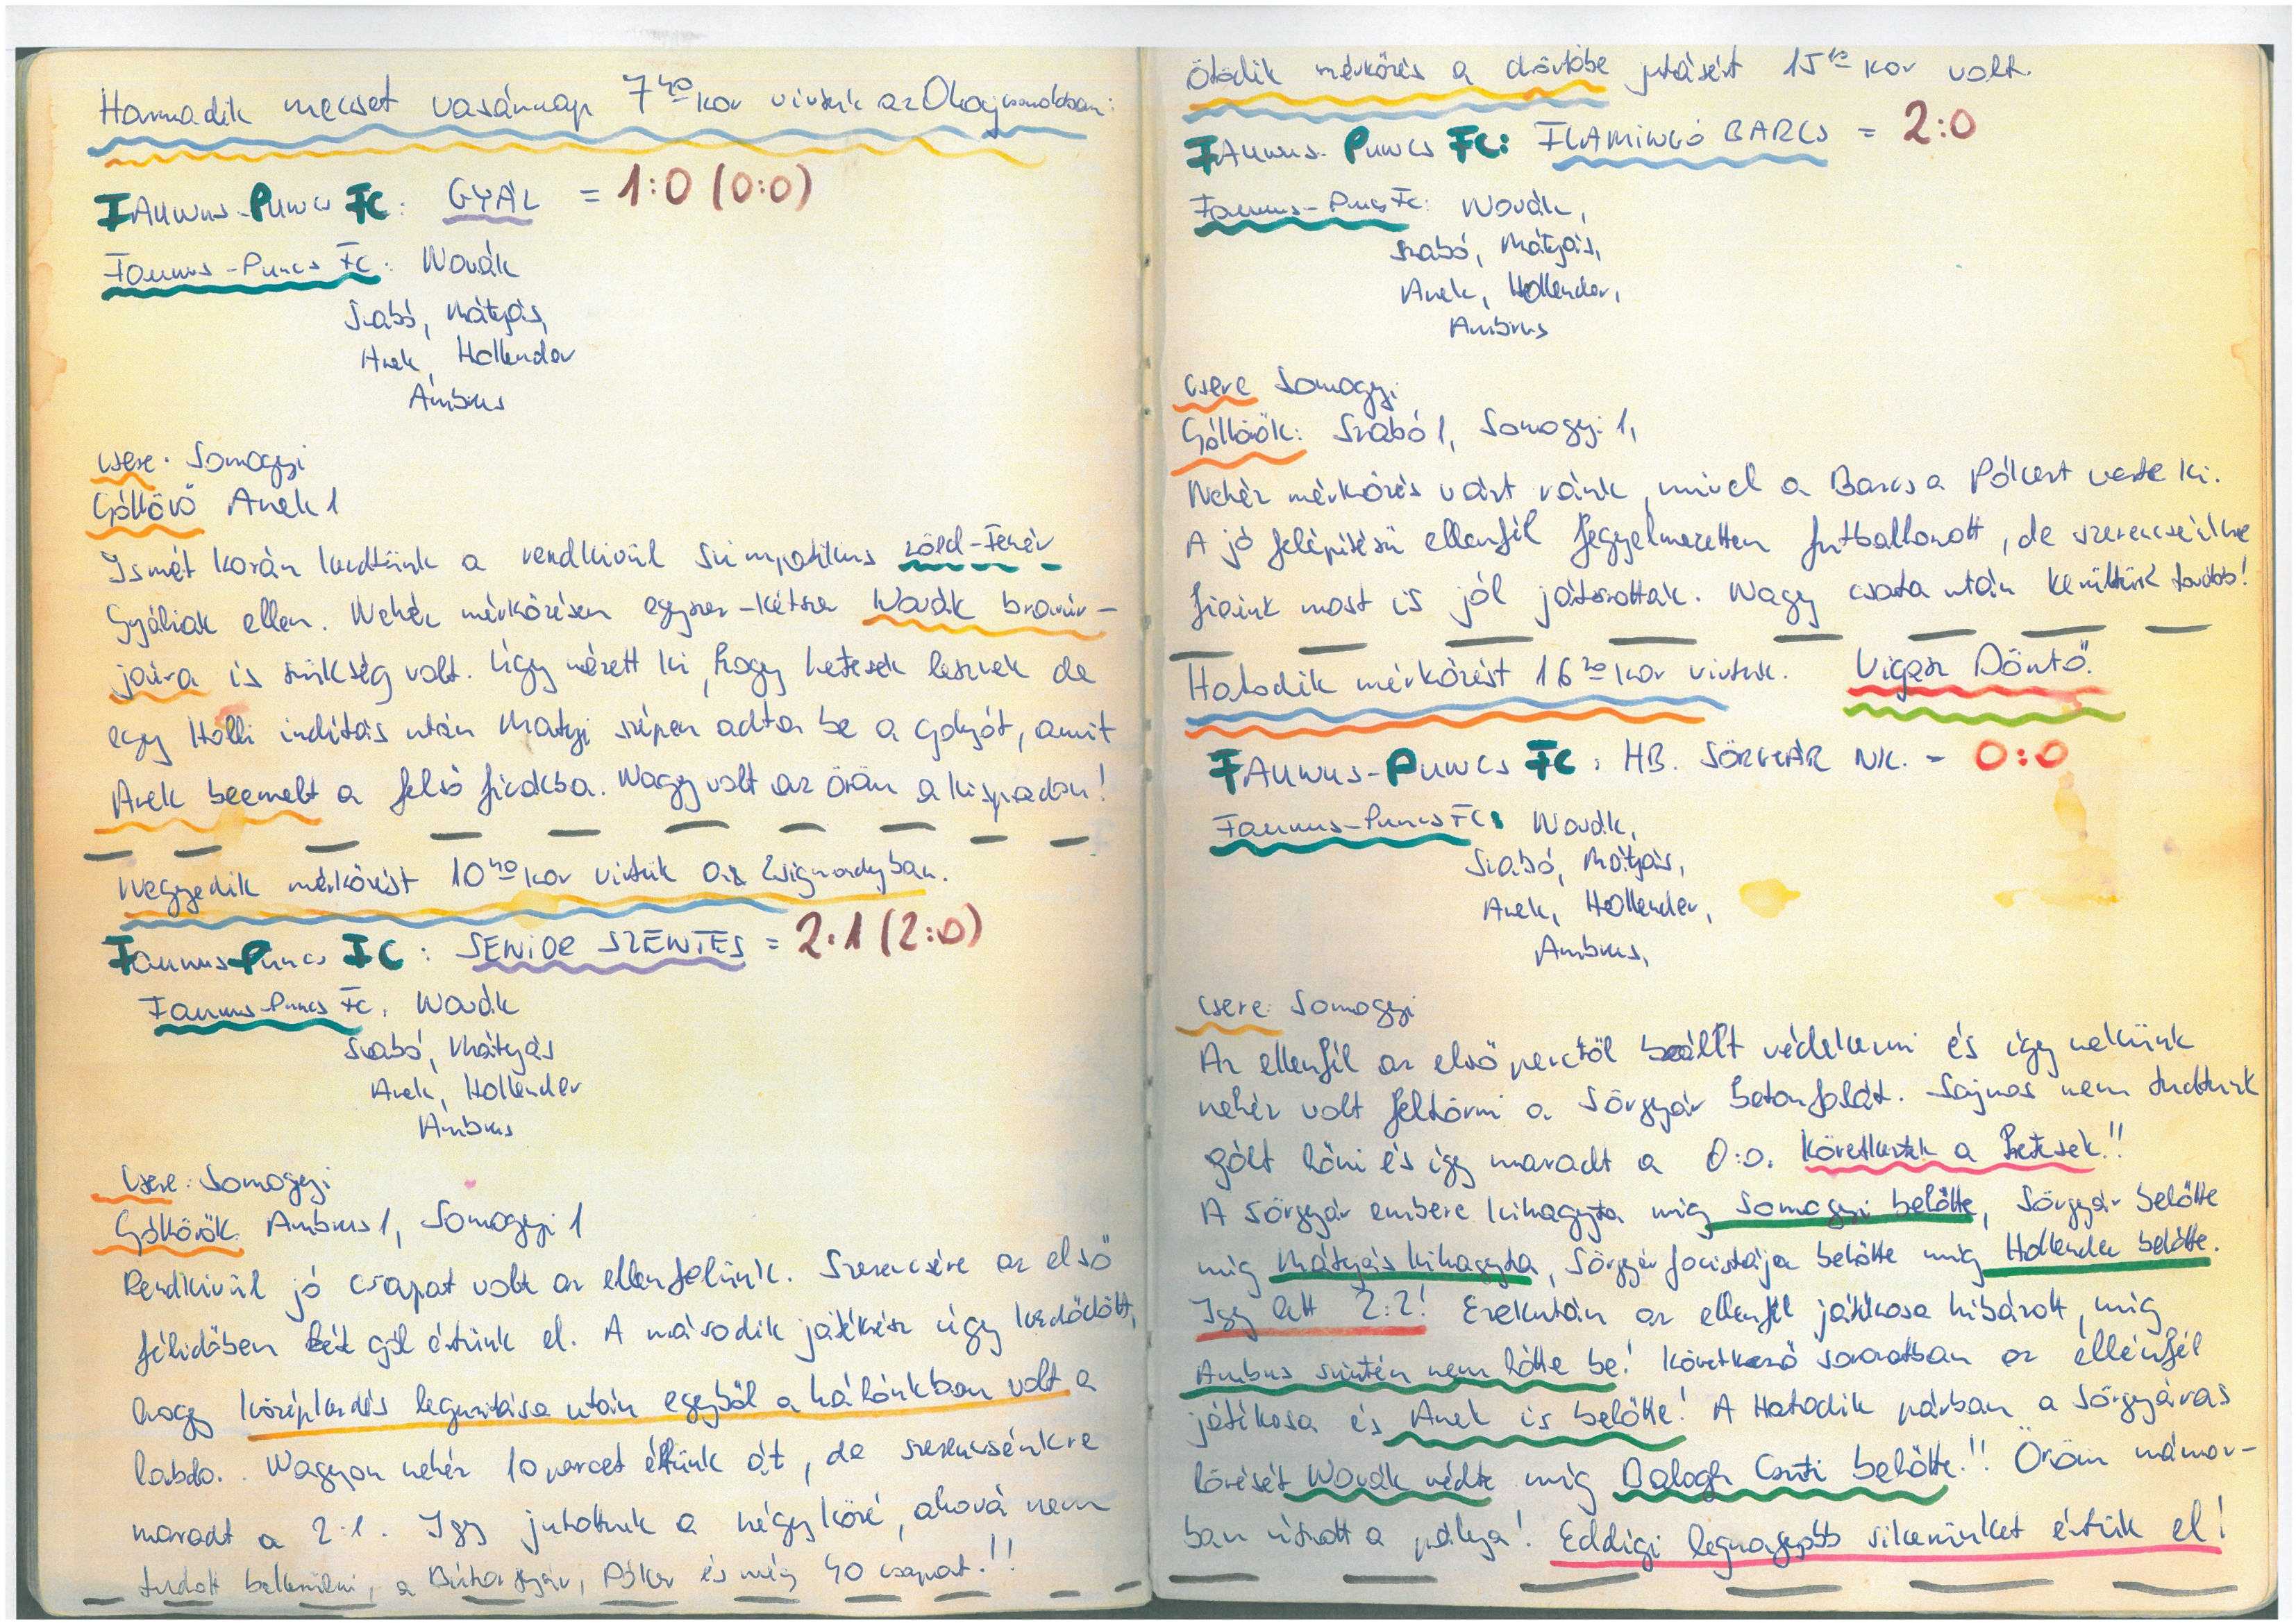 Harmadik meccset vasárnap 7⁴⁰ kor vívtuk az
FAUNUS-PUNCS FC: GYÁL = 1:0 (0:0)
Faunus-Puncs FC: Novák
Szabó, Mátyás,
Anek, Hollender
Ambrus
csere: Somogyi
Góllövő Anek 1
Ismét korán kezdtünk a rendkívül szimpatikus zöld-fehér
Gyáliak ellen. Nehéz mérkőzésen egyszer-kétszer Novák bravúr-
jaira is szükség volt. Úgy nézett ki, hogy hetesek lesznek de
egy Holli indítás után Matyi szépen adta be a golyót, amit
Anek beemelt a felső ficakba. Nagy volt az öröm a kispadon!
Negyedik mérkőzést 10⁴⁰ kor vívtuk a Zsigmondyban.
Faunus-Puncs FC: SENIOR SZENTES = 2:1 (2:0)
Faunus-Puncs FC: Novák
Szabó, Mátyás
Anek, Hollender
Ambrus
Csere: Somogyi
Góllövők: Ambrus 1, Somogyi 1
Rendkívül jó csapat volt az ellenfelünk. Szerencsére az első
félidőben két gól értünk el. A második játékrész úgy kezdődött,
hogy középkezdés legurítása után egyből a hálónkban volt a
labda. Nagyon nehéz 10 percet éltünk át, de szerencsénkre
maradt a 2:1. Igy jutottunk a négy közé, ahová nem
tudott bekerülni, a Bútorgyár, Póker és még 40 csapat.!!
Ötödik mérkőzés a döntőbe jutásért 15¹⁰ kor volt.
FAUNUS-PUNCS FC: FLAMINGÓ BARCS = 2:0
Faunus-Puncs FC: Novák,
Szabó, Mátyás,
Anek, Hollender,
Ambrus
csere Somogyi
Góllövők: Szabó 1, Somogyi 1,
Nehéz mérkőzés várt ránk, mivel a Barcs a Pókert verte ki.
A jó felépítésű ellenfél fegyelmezetten futballozott, de szerencsénkre
fiaink most is jól játszottak. Nagy csata után kerültünk tovább!
Hatodik mérkőzést 16²⁰ kor vívtuk. Vigasz Döntő.
FAUNUS-PUNCS FC: HB. SÖRGYÁR NK. = 0:0
Faunus-Puncs FC: Novák,
Szabó, Mátyás,
Anek, Hollender,
Ambrus,
csere: Somogyi
Az ellenfél az első perctől beállt védekezni és így nekünk
nehéz volt feltörni a Sörgyár betonfalát. Sajnos nem tudtunk
gólt lőni és így maradt a 0:0. Következtek a hetesek!!
A Sörgyár embere kihagyta míg Somogyi belőtte, Sörgyár belőtte
míg Mátyás kihagyta, Sörgyár focistája belőtte míg Hollender belőtte.
Igy lett 2:2! Ezekután az ellenfél játékosa hibázott, míg
Ambrus szintén nem lőtte be! Következő sorozatban az ellenfél
játékosa és Anek is belőtte! A Hatodik párban a Sörgyáras
lövését Novák védte míg Balogh Csuti belőtte!! Öröm mámor-
ban úszott a pálya! Eddigi legnagyobb sikerünket értük el!